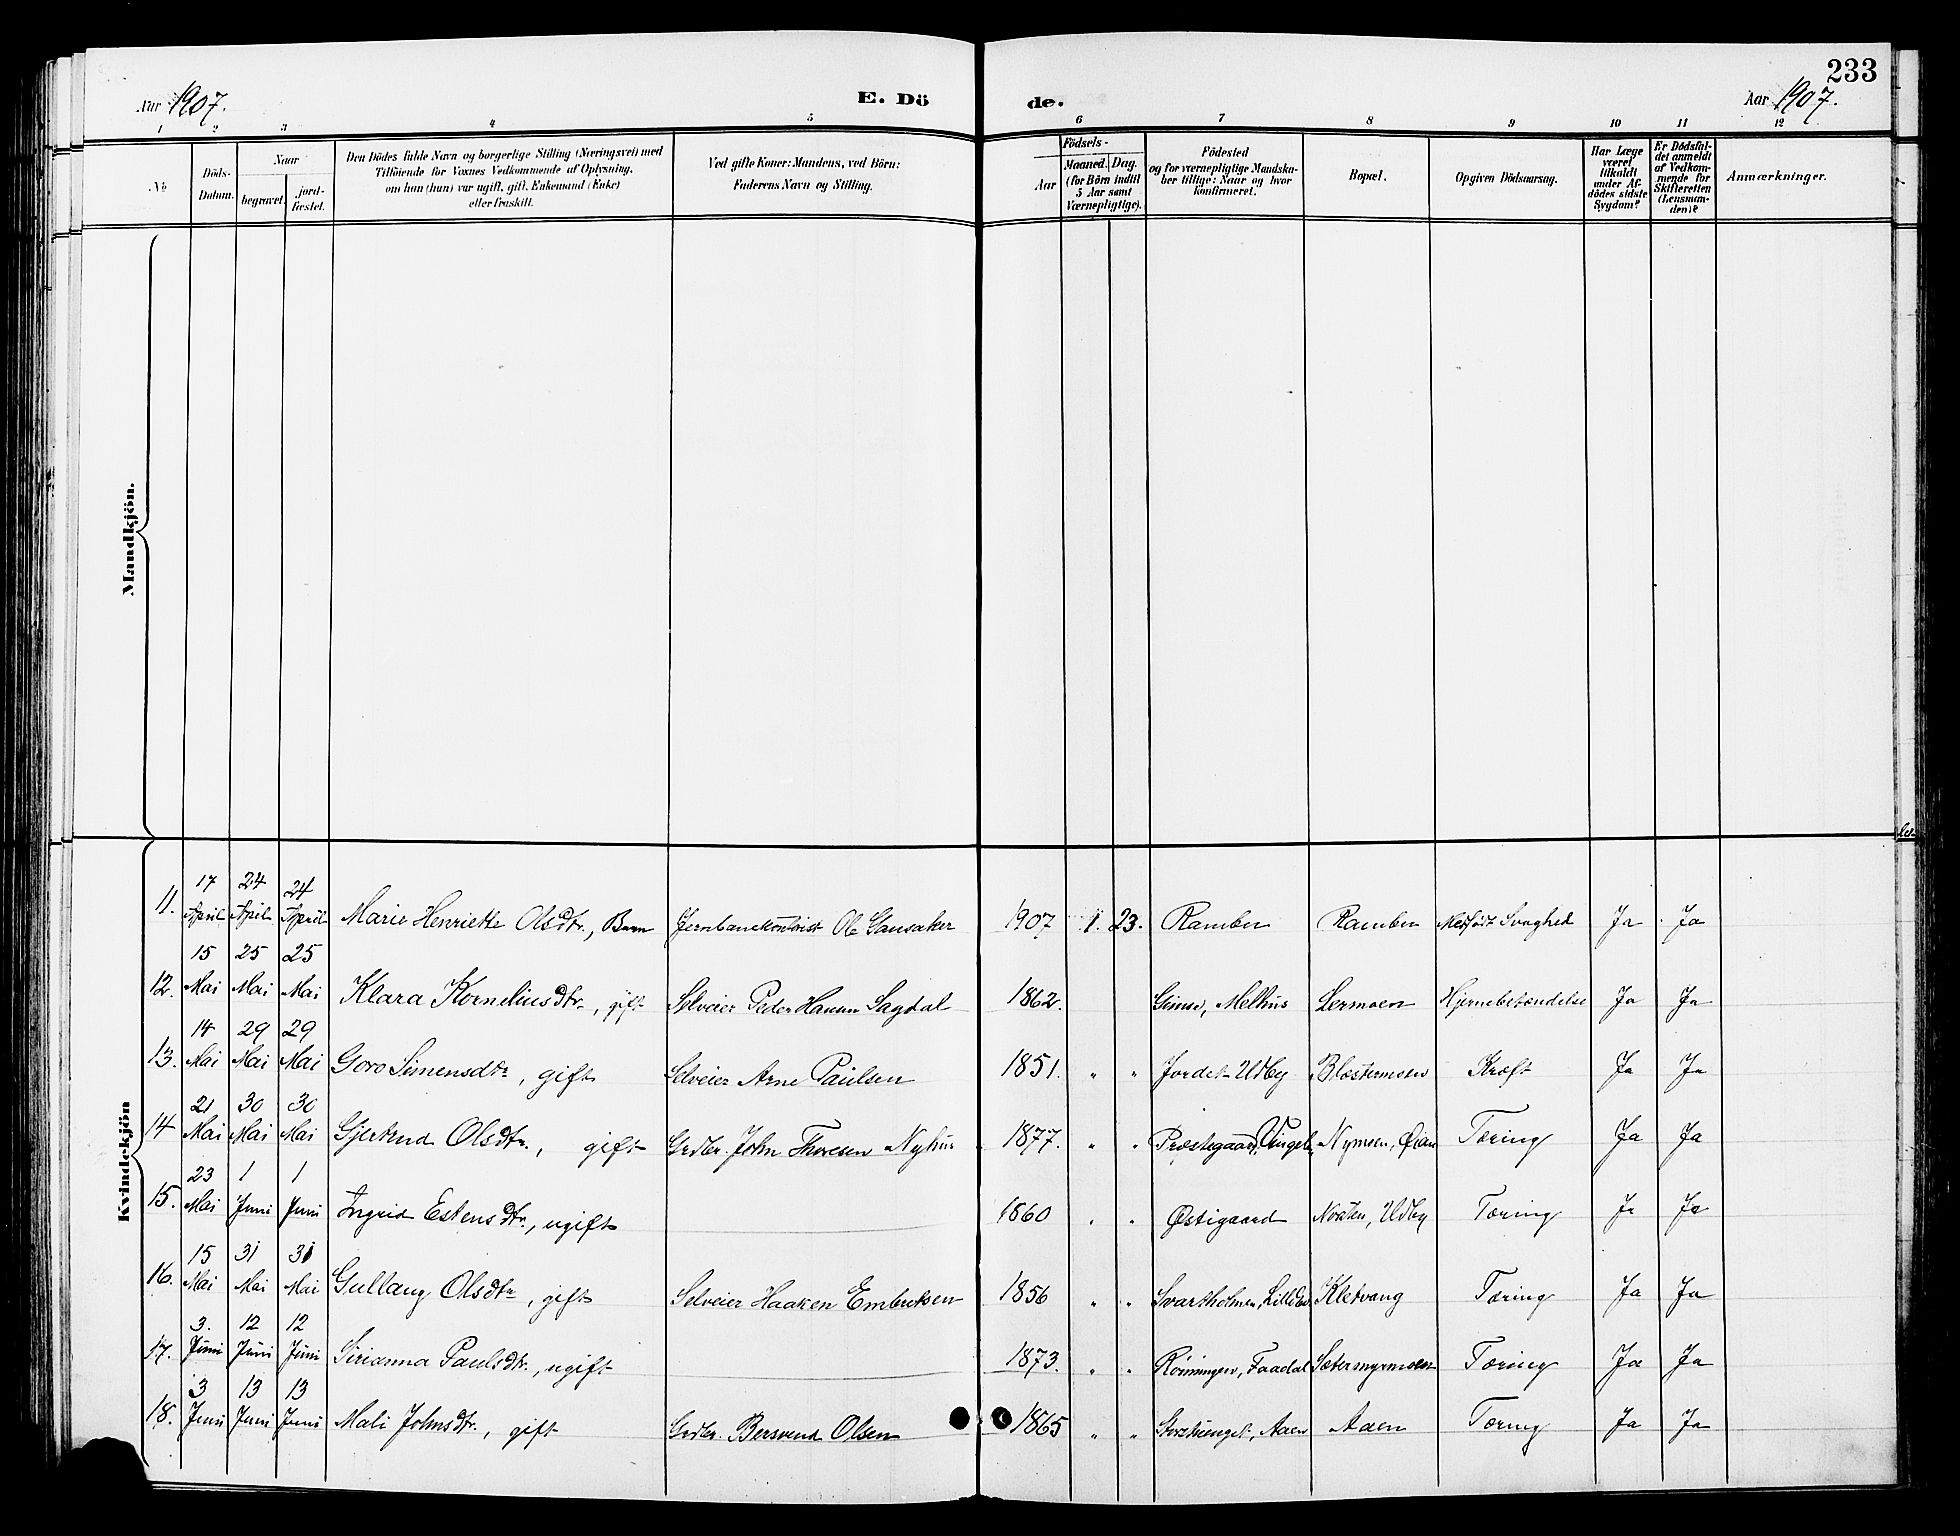 233
Aar 1907.
E. Dö
de.
Aar 1907.
1 2 3 4 5 6 7 8 9 10 11 12
No
Döds-Datum.
Naar
begravet.
jord-fæstet.
Den Dödes fulde Navn og borgerlige Stilling (Næringsvei) med
Tilföiende for Voxnes Vedkommende af Oplysning,
om han (hun) var ugift, gift, Enkemand (Enke)
eller fraskilt.
Ved gifte Koner: Mandens, ved Börn:
Faderens Navn og Stilling.
Födsels-
Aar
Maaned. Dag.
(for Börn indtil
5 Aar samt
Værnepligtige).
Födested
og for værnepligtige Mandska-
ber tillige: Naar og hvor
konfirmeret.
Bopæl.
Opgiven Dödsaarsag.
Har Læge
været
tilkaldt
under Af-
dødes sidste
Sygdom?
Er Dödsfal-
det anmeldt
af Vedkom-
mende for
Skifteretten
(Lensman-
den)?
Anmærkninger.
Mandkjön.
Kvindekjön
11. 17 April 24 April 24 April Marie Henriette Olsdtr., Barn Jernbanekontorist Ole Gansaker 1907 1. 23. Ramben Ramben Medfödt Svaghed Ja Ja
12. 15 Mai 25 Mai 25 Mai Klara Korneliusdtr., gift Selveier Peder Hansen Sagdal 1862. Gimse, Melhus Lermoen Hjernebetændelse Ja Ja
13. 14 Mai 29 Mai 29 Mai Goro Simensdtr, gift Selveier Arne Paulsen 1851. " " Jordet-Udby Blæstermoen Kræft Ja Ja
14 21 Mai 30 Mai 30 Mai Gjertrud Olsdtr., gift Grdbr. John Thoresen Nyhus 1877. " " Præstegaard, Vingelen Nymoen, Øian Tæring Ja Ja
15. 23 Mai 1 Juni 1 Juni Ingrid Estensdtr., ugift 1860 " " Østigaard Udby Tæring Ja Ja
16. 15 Mai 31 Mai 31 Mai Gullaug Olsdtr, gift Selveier Haaken Embretsen 1856 " " Svartholmen, Kletvang Tæring Ja Ja
17. 3. Juni 12 Juni 12 Juni Sirianna Paulsdtr., ugift 1873. " " Rønningen, Faadal Sætermyrmoen Tæring Ja Ja
18. 3 Juni 13 Juni 13 Juni Mali Johnsdtr., gift Grdbr. Bersvend Olsen 1865 " " Aaen Aaen Tæring Ja Ja